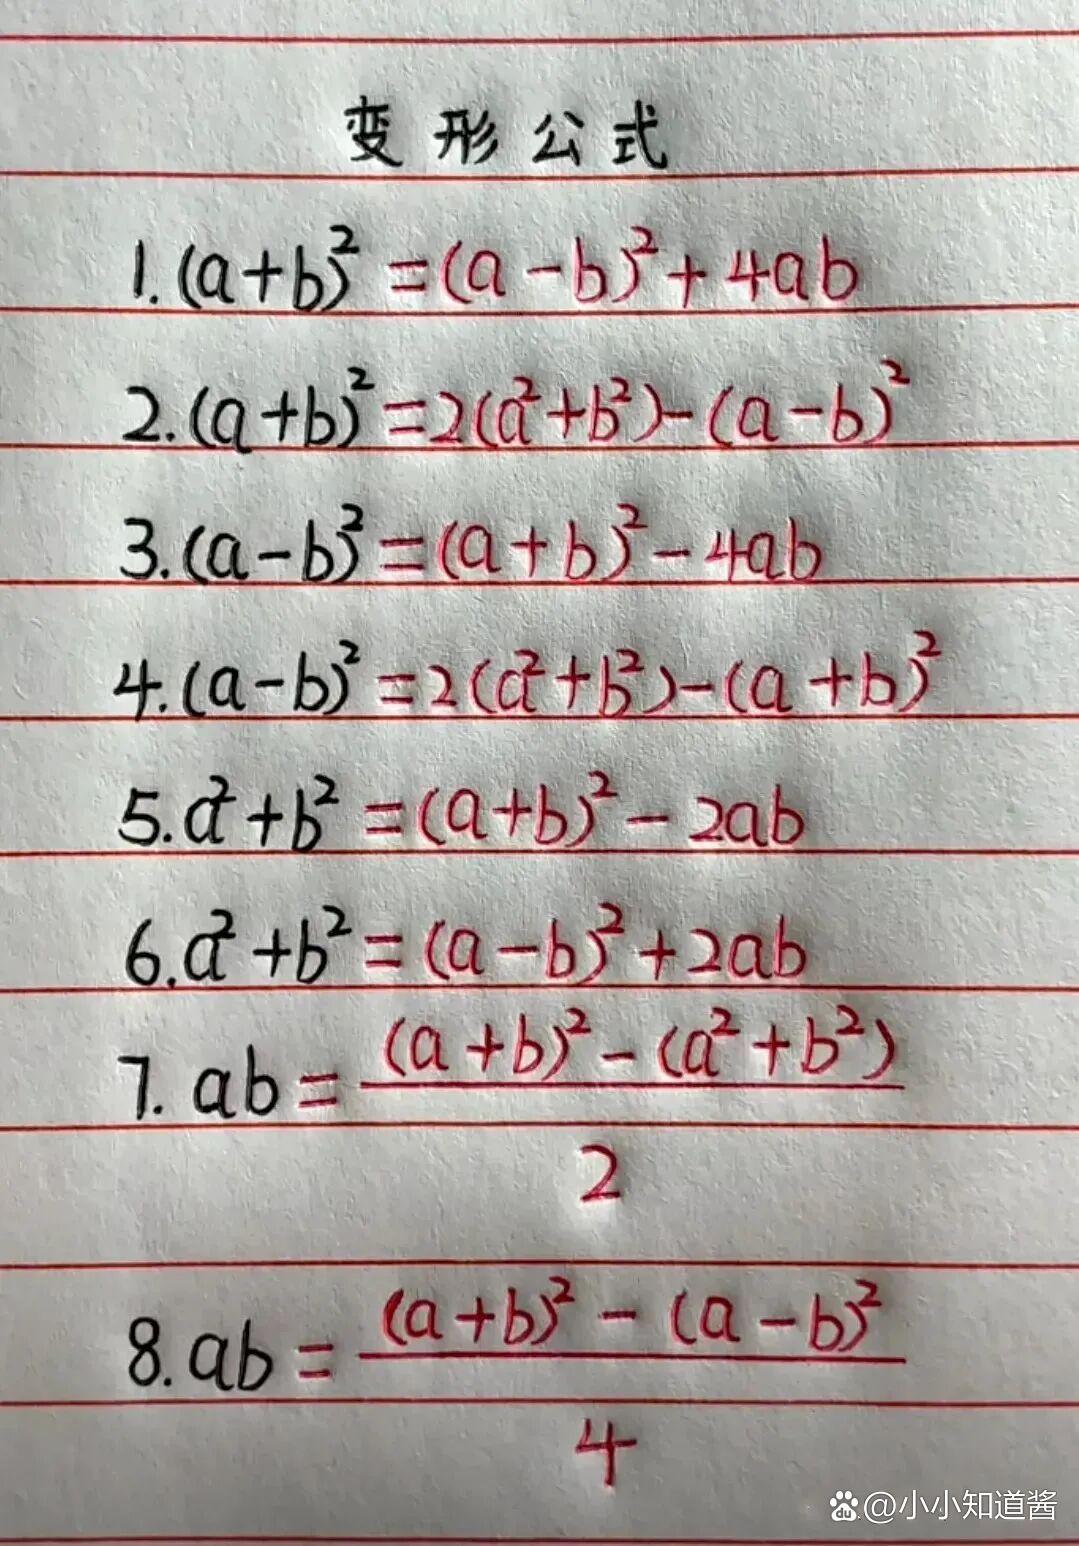 变形公式
1.(a+b)²=(a-b)²+4ab
2.(a+b)²=2(a²+b²)-(a-b)²
3.(a-b)²=(a+b)²-4ab
4.(a-b)²=2(a²+b²)-(a+b)²
5.a²+b²=(a+b)²-2ab
6.a²+b²=(a-b)²+2ab
(a+b)²-(a²+b²)
7.ab=
2
(a+b)²-(a-b)²
8.ab=
4
du @小小知道酱